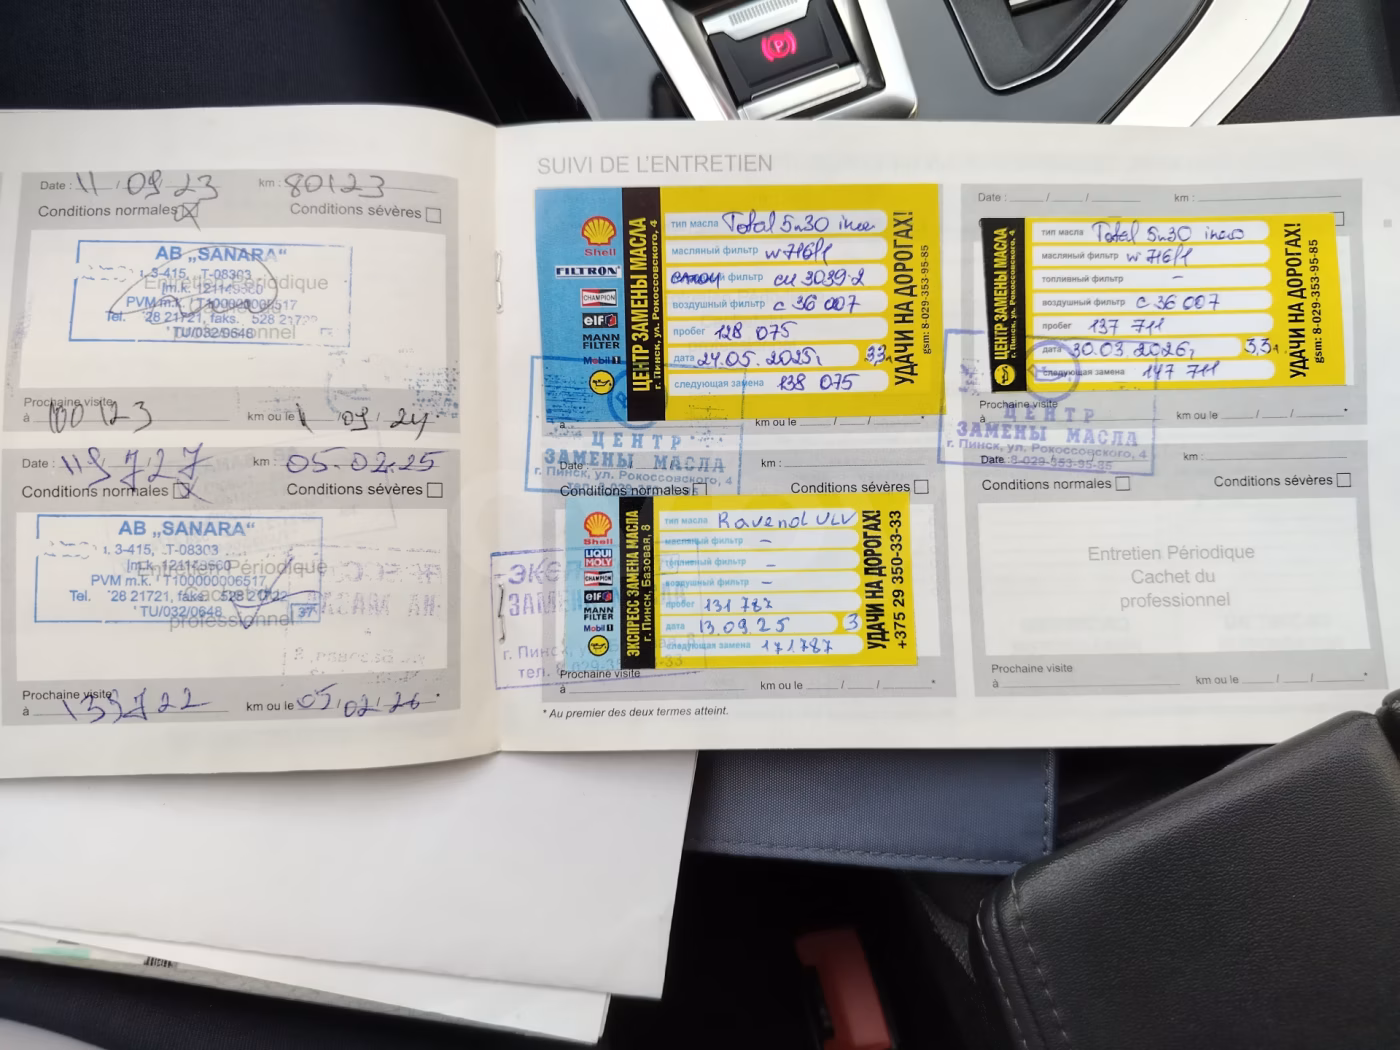 Date : 11 / 09 / 23 km : 80123
Conditions normales Conditions sévères
AB „SANARA“
Entretien Périodique
professionnel
Prochaine visite
à 100123 km ou le 1 09 24
Date : 119727 km : 05.02.25
Conditions normales Conditions sévères
AB „SANARA“
3-415, T-08303
Į.m.k. 121145360
PVM m.k. T100000006517
Tel. 28 21721, faks. 528 21722
TU/032/0648 37
Entretien Périodique
professionnel
Prochaine visite
à 139722 km ou le 05 / 02 / 26 *
SUIVI DE L'ENTRETIEN
Shell
FILTRON
CHAMPION
elf
MANN FILTER
Mobil 1
ЦЕНТР ЗАМЕНЫ МАСЛА
г. Пинск, ул. Рокоссовского, 4
тип масла Total 5w30 ineo
масляный фильтр w716/1
салон фильтр cu 3039-2
воздушный фильтр c 36 007
пробег 128 075
дата 24.05.2025г. 3,3л
следующая замена 138 075
УДАЧИ НА ДОРОГАХ!
gsm: 8-029-353-95-85
à km ou le / / *
ЦЕНТР
ЗАМЕНЫ МАСЛА
г. Пинск, ул. Рокоссовского, 4
Date : km :
Conditions normales Conditions sévères
Shell
LIQUI MOLY
CHAMPION
elf
MANN FILTER
Mobil 1
ЭКСПРЕСС ЗАМЕНА МАСЛА
г. Пинск, Базовая, 8
тип масла Ravenol VLV
масляный фильтр –
топливный фильтр –
воздушный фильтр –
пробег 131 787
дата 13.09.25 3
следующая замена 171787
УДАЧИ НА ДОРОГАХ!
+375 29 350-33-33
Prochaine visite
à km ou le / / *
* Au premier des deux termes atteint.
Date : / / km :
ЦЕНТР ЗАМЕНЫ МАСЛА
г. Пинск, ул. Рокоссовского, 4
тип масла Total 5w30 ineo
масляный фильтр w716/1
топливный фильтр –
воздушный фильтр c 36 007
пробег 137 711
дата 30.03.2026г. 3,3л.
следующая замена 147 711
УДАЧИ НА ДОРОГАХ!
gsm: 8-029-353-95-85
Prochaine visite
à km ou le / / *
ЦЕНТР
ЗАМЕНЫ МАСЛА
г. Пинск, ул. Рокоссовского, 4
8-029-353-95-85
Date : km :
Conditions normales Conditions sévères
Entretien Périodique
Cachet du
professionnel
Prochaine visite
à km ou le / / *